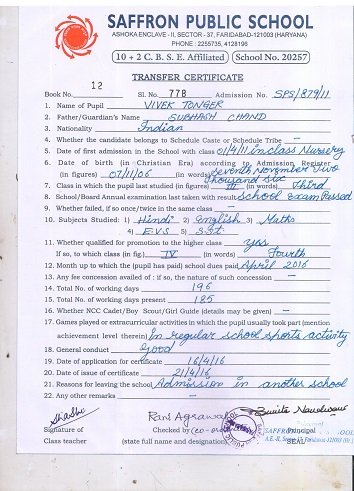 SAFFRON PUBLIC SCHOOL
ASHOKA ENCLAVE - II, SECTOR - 37, FARIDABAD-121003 (HARYANA)
PHONE : 2255735, 4128196
10 + 2 C. B. S. E. Affiliated School No. 20257
TRANSFER CERTIFICATE
Book No. 12 Sl. No. 77B Admission No. SPS/879/11
1. Name of Pupil VIVEK TONGER
2. Father/Guardian's Name SUBHASH CHAND
3. Nationality Indian
4. Whether the candidate belongs to Schedule Caste or Schedule Tribe -
5. Date of first admission in the School with class 01/4/11 in class Nursery
6. Date of birth (in Christian Era) according to Admission Register
(in figures) 07/11/06 (in words) Seventh November Two
thousand Six
7. Class in which the pupil last studied (in figures) III (in words) Third
8. School/Board Annual examination last taken with result School exam Passed
9. Whether failed, if so once/twice in the same class -
10. Subjects Studied: 1) Hindi 2) English 3) Maths
4) EVS 5) S.St
11. Whether qualified for promotion to the higher class Yes
If so, to which class (in fig.) IV (in words) Fourth
12. Month up to which the (pupil has paid) school dues paid April 2016
13. Any fee concession availed of : if so, the nature of such concession -
14. Total No. of working days 196
15. Total No. of working days present 185
16. Whether NCC Cadet/Boy Scout/Girl Guide (details may be given) -
17. Games played or extracurricular activities in which the pupil usually took part (mention
achievement level therein) In regular school sports activity
18. General conduct Good
19. Date of application for certificate 16/4/16
20. Date of issue of certificate 21/4/16
21. Reasons for leaving the school Admission in another school
22. Any other remarks -
Signature of
Class teacher
Rani Agrawal
Checked by
(state full name and designation)
Principal
SEAL